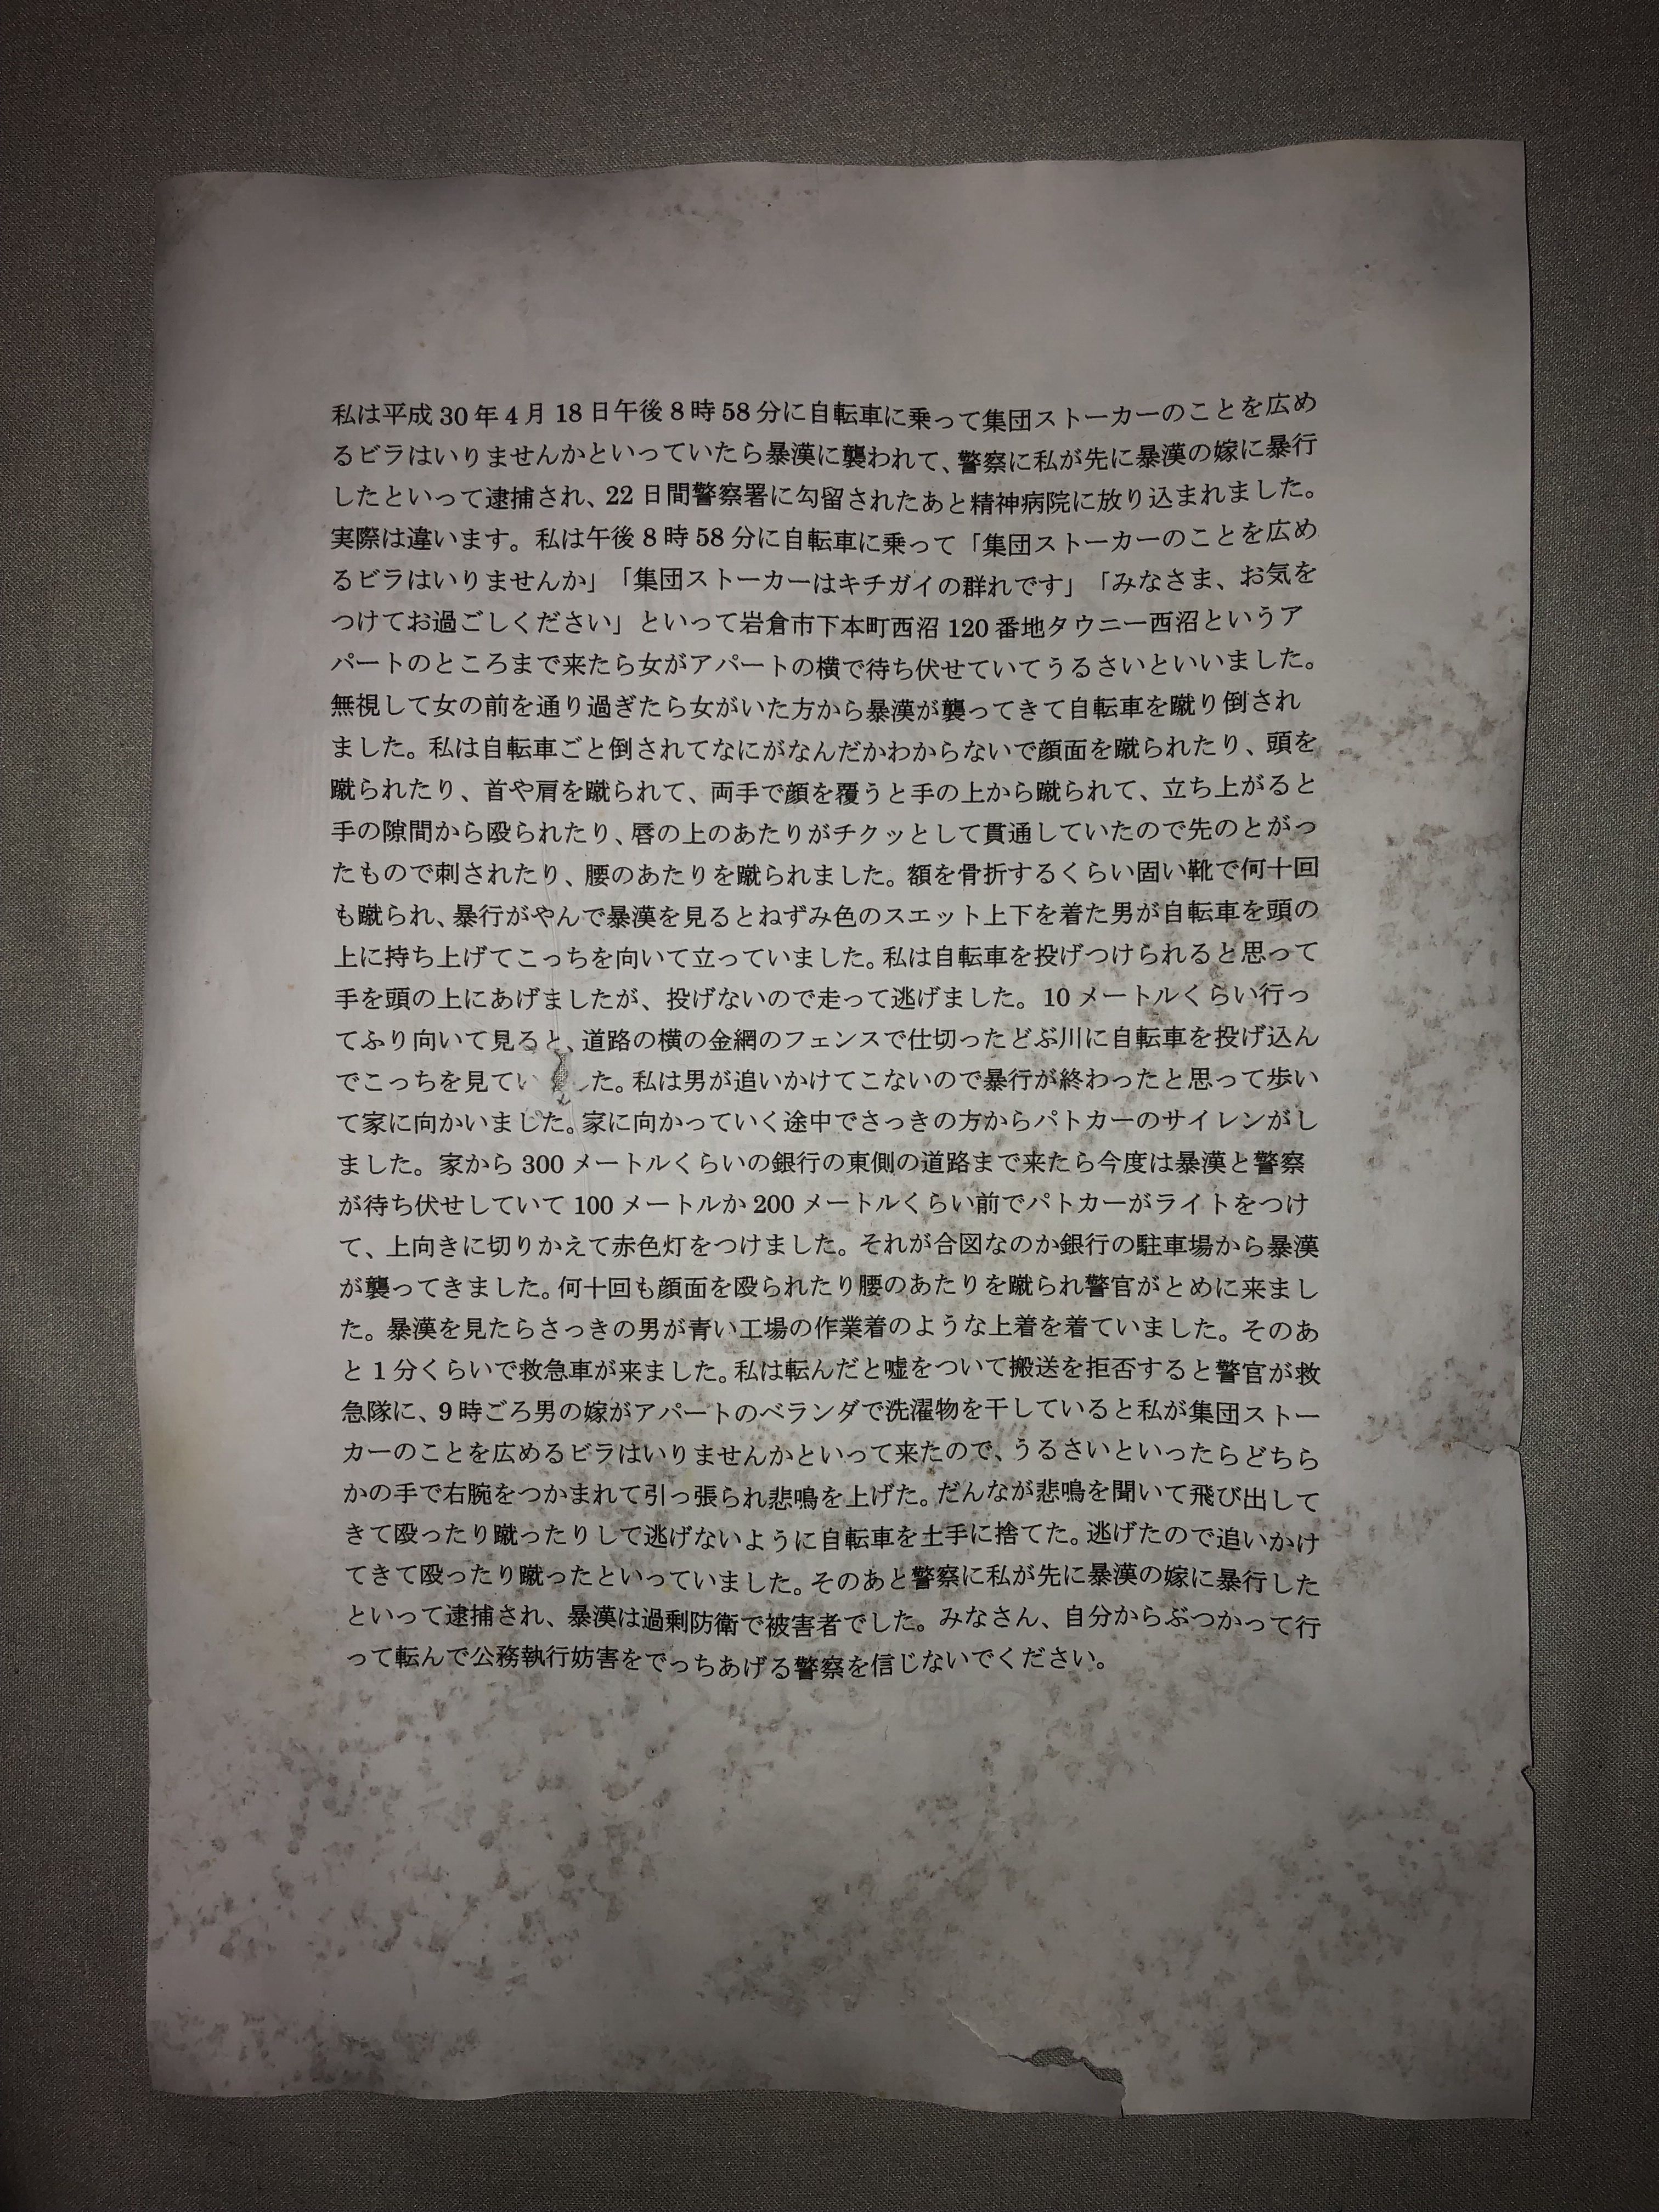 私は平成 30 年 4 月 18 日午後 8 時 58 分に自転車に乗って集団ストーカーのことを広め
るビラはいりませんかといっていたら暴漢に襲われて、警察に私が先に暴漢の嫁に暴行
したといって逮捕され、22 日間警察署に勾留されたあと精神病院に放り込まれました。
実際は違います。私は午後 8 時 58 分に自転車に乗って「集団ストーカーのことを広め
るビラはいりませんか」「集団ストーカーはキチガイの群れです」「みなさま、お気を
つけてお過ごしください」といって岩倉市下本町西沼 120 番地タウニー西沼というア
パートのところまで来たら女がアパートの横で待ち伏せていてうるさいといいました。
無視して女の前を通り過ぎたら女がいた方から暴漢が襲ってきて自転車を蹴り倒され
ました。私は自転車ごと倒されてなにがなんだかわからないで顔面を蹴られたり、頭を
蹴られたり、首や肩を蹴られて、両手で顔を覆うと手の上から蹴られて、立ち上がると
手の隙間から殴られたり、唇の上のあたりがチクッとして貫通していたので先のとがっ
たもので刺されたり、腰のあたりを蹴られました。額を骨折するくらい固い靴で何十回
も蹴られ、暴行がやんで暴漢を見るとねずみ色のスエット上下を着た男が自転車を頭の
上に持ち上げてこっちを向いて立っていました。私は自転車を投げつけられると思って
手を頭の上にあげましたが、投げないので走って逃げました。10 メートルくらい行っ
てふり向いて見ると、道路の横の金網のフェンスで仕切ったどぶ川に自転車を投げ込ん
でこっちを見てい した。私は男が追いかけてこないので暴行が終わったと思って歩い
て家に向かいました。家に向かっていく途中でさっきの方からパトカーのサイレンがし
ました。家から 300 メートルくらいの銀行の東側の道路まで来たら今度は暴漢と警察
が待ち伏せしていて 100 メートルか 200 メートルくらい前でパトカーがライトをつけ
て、上向きに切りかえて赤色灯をつけました。それが合図なのか銀行の駐車場から暴漢
が襲ってきました。何十回も顔面を殴られたり腰のあたりを蹴られ警官がとめに来まし
た。暴漢を見たらさっきの男が青い工場の作業着のような上着を着ていました。そのあ
と 1 分くらいで救急車が来ました。私は転んだと嘘をついて搬送を拒否すると警官が救
急隊に、9 時ごろ男の嫁がアパートのベランダで洗濯物を干していると私が集団ストー
カーのことを広めるビラはいりませんかといって来たので、うるさいといったらどちら
かの手で右腕をつかまれて引っ張られ悲鳴を上げた。だんなが悲鳴を聞いて飛び出して
きて殴ったり蹴ったりして逃げないように自転車を土手に捨てた。逃げたので追いかけ
てきて殴ったり蹴ったといっていました。そのあと警察に私が先に暴漢の嫁に暴行した
といって逮捕され、暴漢は過剰防衛で被害者でした。みなさん、自分からぶつかって行
って転んで公務執行妨害をでっちあげる警察を信じないでください。